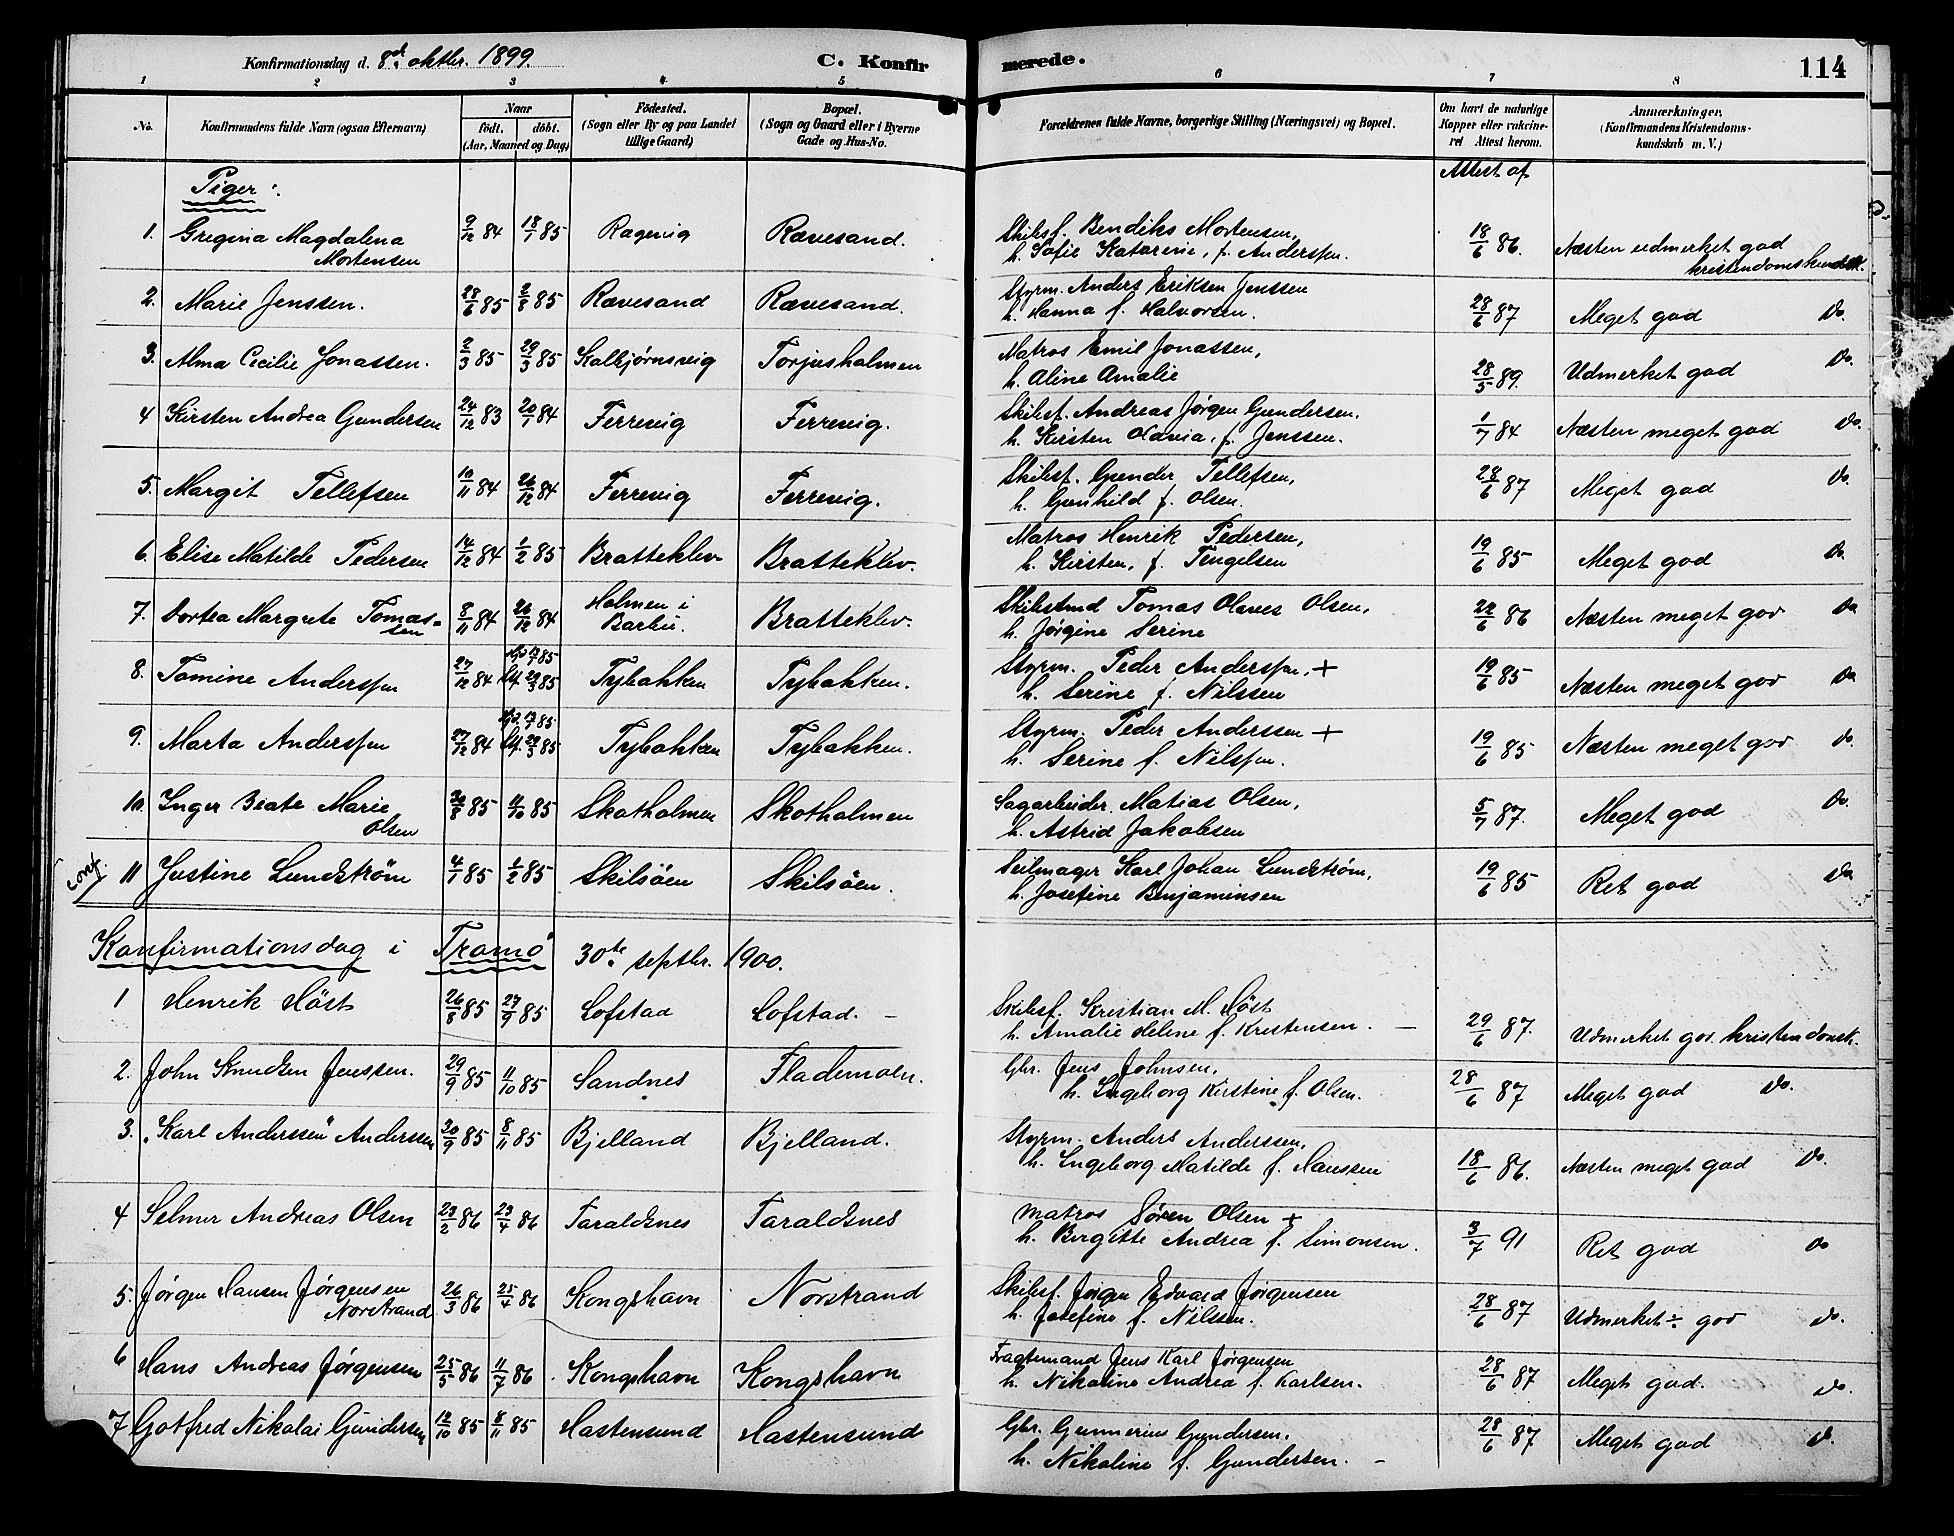 Konfirmationsdag d. 8de oktbr. 1899.
C. Konfirmerede.
114
1 2 3 4 5 6 7 8
No.
Konfirmandens fulde Navn (ogsaa Efternavn)
Naar
født. døbt.
(Aar, Maaned og Dag)
Fødested.
(Sogn eller By og paa Landet
tillige Gaard)
Bopæl.
(Sogn og Gaard eller i Byerne
Gade og Hus-No.
Forældrenes fulde Navne, borgerlige Stilling (Næringsvei) og Bopæl.
Om havt de naturlige
Kopper eller vakcine-
ret Attest herom.
Anmærkninger.
(Konfirmandens Kristendoms-
kundskab m. V.)
Piger:
Attest af
1. Gregina Magdalena Mortensen 9/12 84 18/1 85 Ragevig Rævesand. Skibsf. Bendiks Mortensen, h. Sofie Katarine, f. Anderssen. 18/6 86. Næsten udmerket god kristendomskundsk.
2. Marie Jenssen. 28/6 85 2/8 85 Rævesand Rævesand. Styrm. Anders Eriksen Jenssen h. Hanna f. Halvorsen. 28/6 87 Meget god Do.
3. Alma Cecilie Jonassen. 2/3 85 29/3 85 Kalbjørnsvig Torjusholmen Matros Emil Jonassen, h. Aline Amalie 28/5 89. Udmerket god Do.
4 Kirsten Andrea Gundersen 24/12 83 20/1 84 Ferrevig Ferrevig. Skibsf. Andreas Jørgen Gundersen. h. Kirsten Olavia, f. Jenssen. 1/7 84 Næsten meget god Do.
5. Margit Tellefsen 10/11 84 26/12 84 Ferrevig Ferrevig. Skibsf. Gunder Tellefsen, h. Gunhild f. Olsen. 28/6 87 Meget god Do.
6. Elise Matilde Pedersen 14/12 84 1/2 85 Bratteklev Bratteklev. Matros Henrik Pedersen, h. Kirsten, f. Tengelsen 19/6 85 Meget god Do.
7. Dortea Margrete Tomassen 8/11 84 26/12 84 Holmen i Barbu. Bratteklev. Skibstmd Tomas Olaves Olsen, h. Jørgine Serine 22/6 86 Næsten meget god Do
8. Tomine Anderssen 27/12 84 17/1 85 29/3 85 Tybakken Tybakken. Styrm. Peder Anderssen, + h. Serine f. Nilssen 19/6 85 Næsten meget god Do
9. Marta Anderssen 27/12 84 17/1 85 29/3 85 Tybakken Tybakken. Styrm. Peder Anderssen + h. Serine f. Nilssen. 19/6 85 Næsten meget god Do.
10. Inger Beate Marie Olsen 20/8 85 11/10 85 Skotholmen Skotholmen Sagarbeider Matias Olsen, h. Astrid Jakobsen 5/7 87. Meget god Do.
conf. 11 Justine Lundstrøm 4/1 85 1/2 85 Skilsöen Skilsöen. Seilmager Karl Johan Lundstrøm, h. Josefine Benjaminsen 19/6 85 Ret god Do
Konfirmationsdag i Tromö 30te septbr. 1900.
1 Henrik Höst 26/8 85 27/9 85 Lofstad Lofstad. – Skibsf. Kristian M. Höst h. Amalie Helene f. Kristensen. – 29/6 87. Udmerket god kristendomsk.
2. John Knudsen Jenssen. 29/9 85 11/10 85 Sandnes Flademoen. Gbr. Jens Johnsen, h. Ingeborg Kirstine f. Olsen. 28/6 87 Meget god Do.
3. "Karl Anderssen" Anderssen 20/9 85 8/11 85 Bjelland Bjelland. Styrm. Anders Anderssen, h. Ingeborg Matilde f. Hanssen 18/6 86. Næsten meget god Do.
4 Selmer Andreas Olsen 23/2 86 23/4 86 Faraldsnes Faraldsnes Matros Søren Olsen + h. Bergitte Andrea f. Simonsen. 3/7 91 Ret god do
5. Jørgen Hansen Jørgensen Norstrand 26/3 86 25/4 86 Kongshavn Norstrand Skibsf. Jørgen Edvard Jørgensen h. Josefine f. Nilssen. 28/6 87 Udmerket ÷ god do.
6 Hans Andreas Jørgensen 25/5 86 11/7 86 Kongshavn Kongshavn Fragtemand Jens Karl Jørgensen h. Nikoline Andrea f. Karlsen. 28/6 87 Meget god. do.
7 Gotfred Nikolai Gundersen 12/10 85 8/11 85 Hastensund Hastensund Gbr. Gunnerius Gundersen. h. Nikoline f. Gundersen. – 28/6 87 Meget god d.